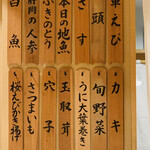 車えび
頭
きす
本日の地魚
ふきのとう
静岡の人参
白魚
カキ
旬野菜
うに大葉巻き
玉取茸
穴子
さつまいも
桜えびかき揚げ